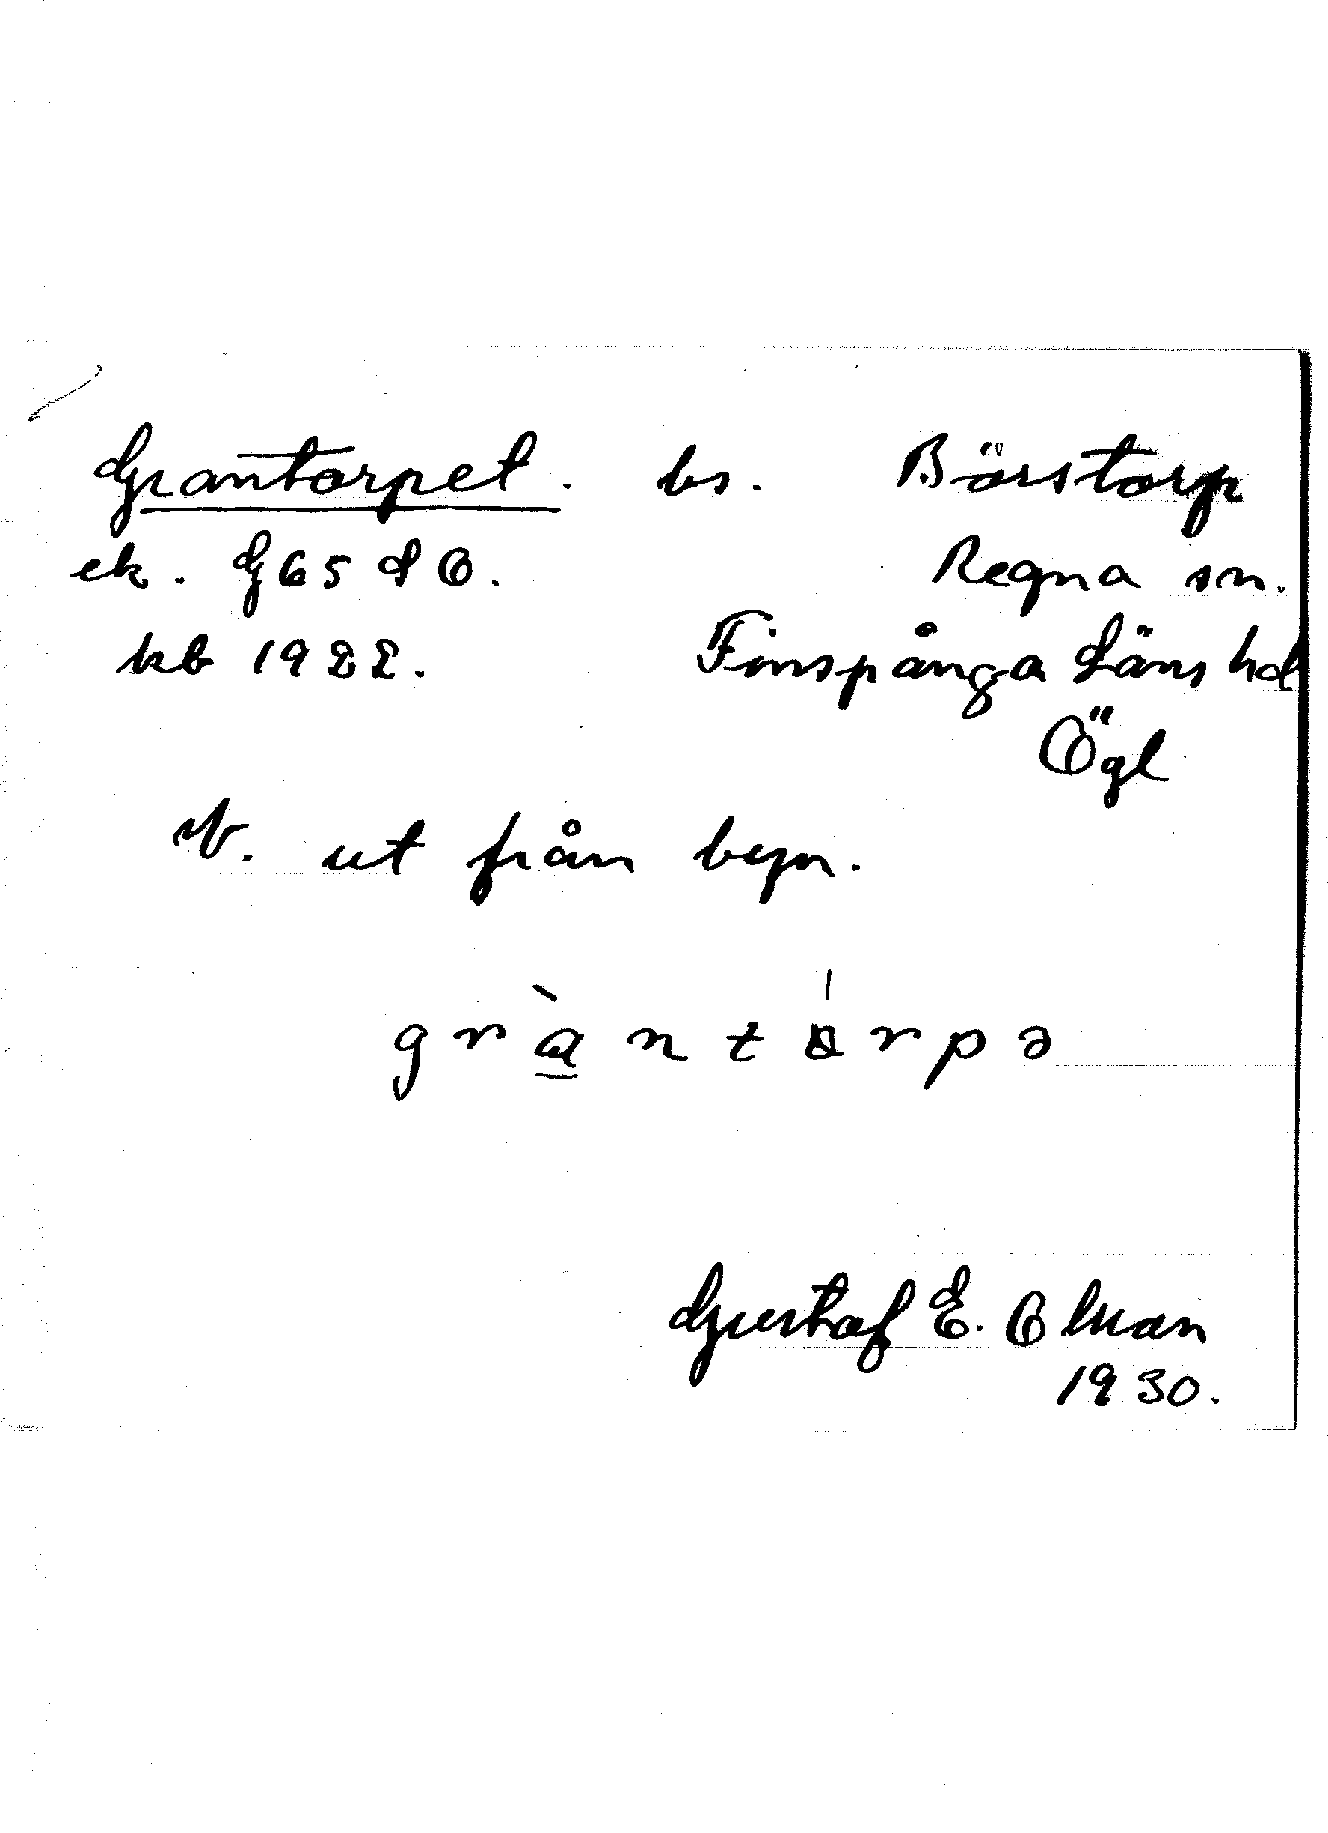 Grantorpet. bs. Börstorp
ek. G 65 d Ö. Regna sn.
kb 1922. Finspånga Läns hd
Ögl
V. ut från byn.
gràntɔrpə
Gustaf E. Olman
1930.